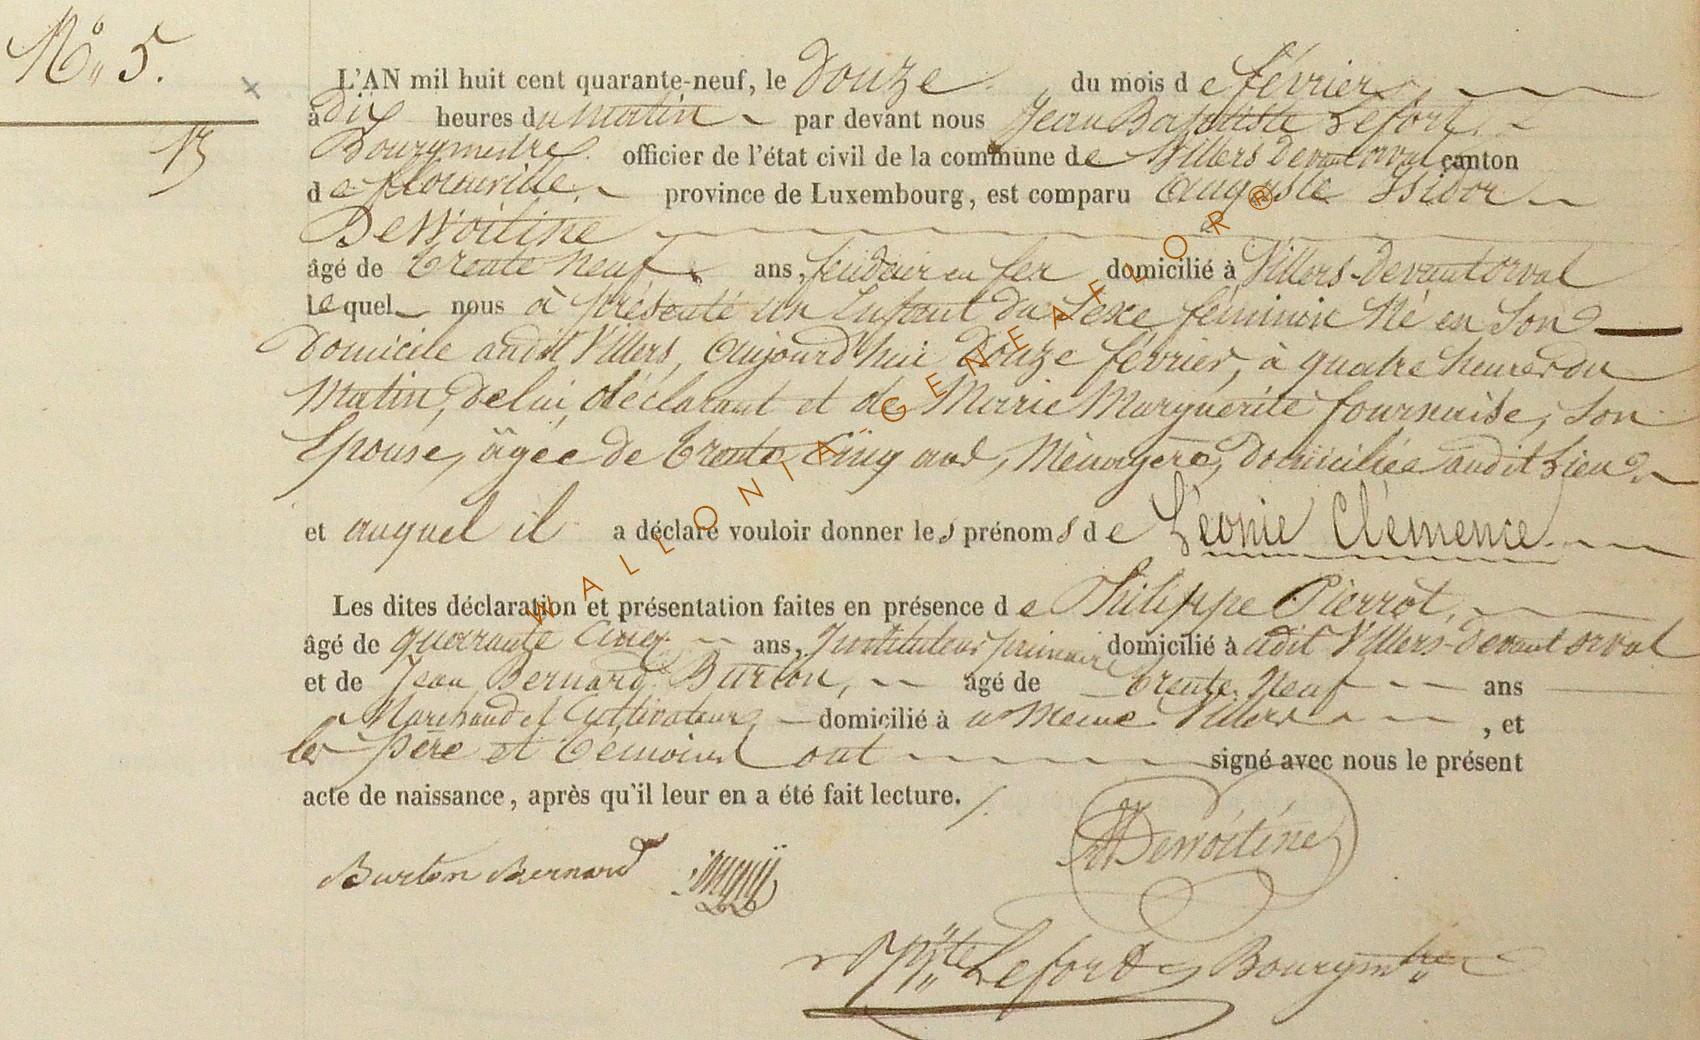 N° 5.
13
L'AN mil huit cent quarante-neuf, le douze du mois de février,
à dix heures du matin par devant nous Jean Baptiste Lefort,
Bourgmestre officier de l'état civil de la commune de Villers devant orval canton
de florenville, province de Luxembourg, est comparu Auguste Isidor
DeWoitine
âgé de trente neuf ans, fendeur en fer domicilié à Villers-devant orval
lequel nous à présenté un Enfant du Sexe féminin Né en Son
Domicile audit Villers, Aujourd'hui douze février, à quatre heures du
Matin, de lui déclarant et de Marie Marguerite fournaise, Son
Epouse, âgée de trente Cinq ans, Ménagère, domiciliée audit Lieu
et auquel il a déclaré vouloir donner les prénoms de Léonie Clémence
Les dites déclaration et présentation faites en présence de Philippe Pierrot,
âgé de quarrante Cinq ans, Instituteur primaire domicilié à adit Villers-devant orval
et de Jean Bernard Burton, âgé de trente Neuf ans
Marchand et Cultivateur domicilié à u Meme Villers , et
les père et témoins ont signé avec nous le présent
acte de naissance, après qu'il leur en a été fait lecture.
DeWoitine
Burton Bernard
Bte Lefort Bourgmtre
WALLONIA-GENEAFLOR®